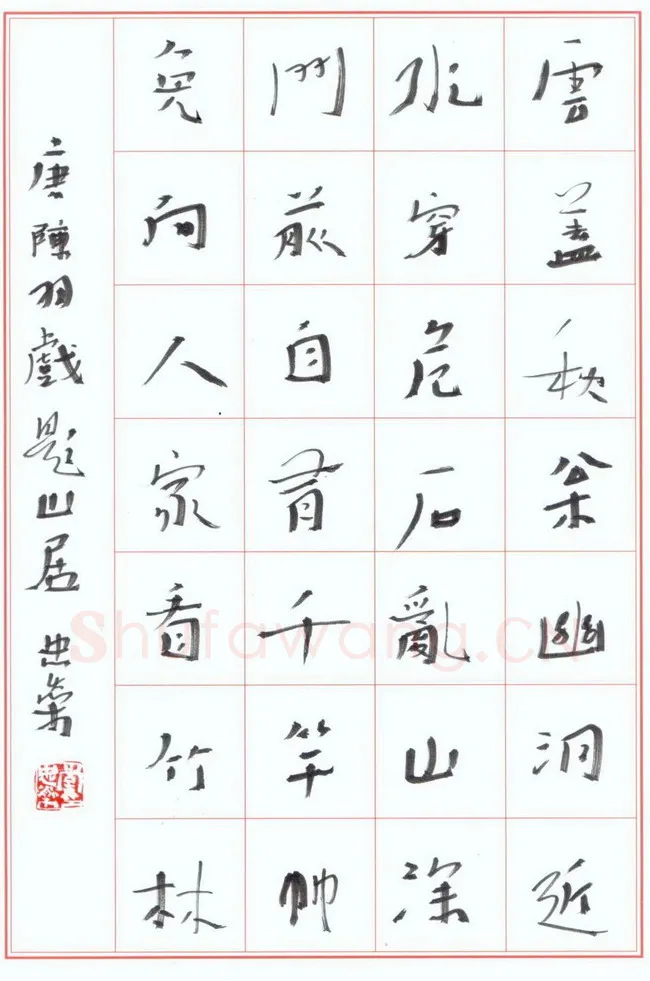 雲蓋秋枀幽洞近
水穿危石亂山深
門前自有千竿竹
免向人家看竹林
唐陳羽戲題山居
Shufawang.cn